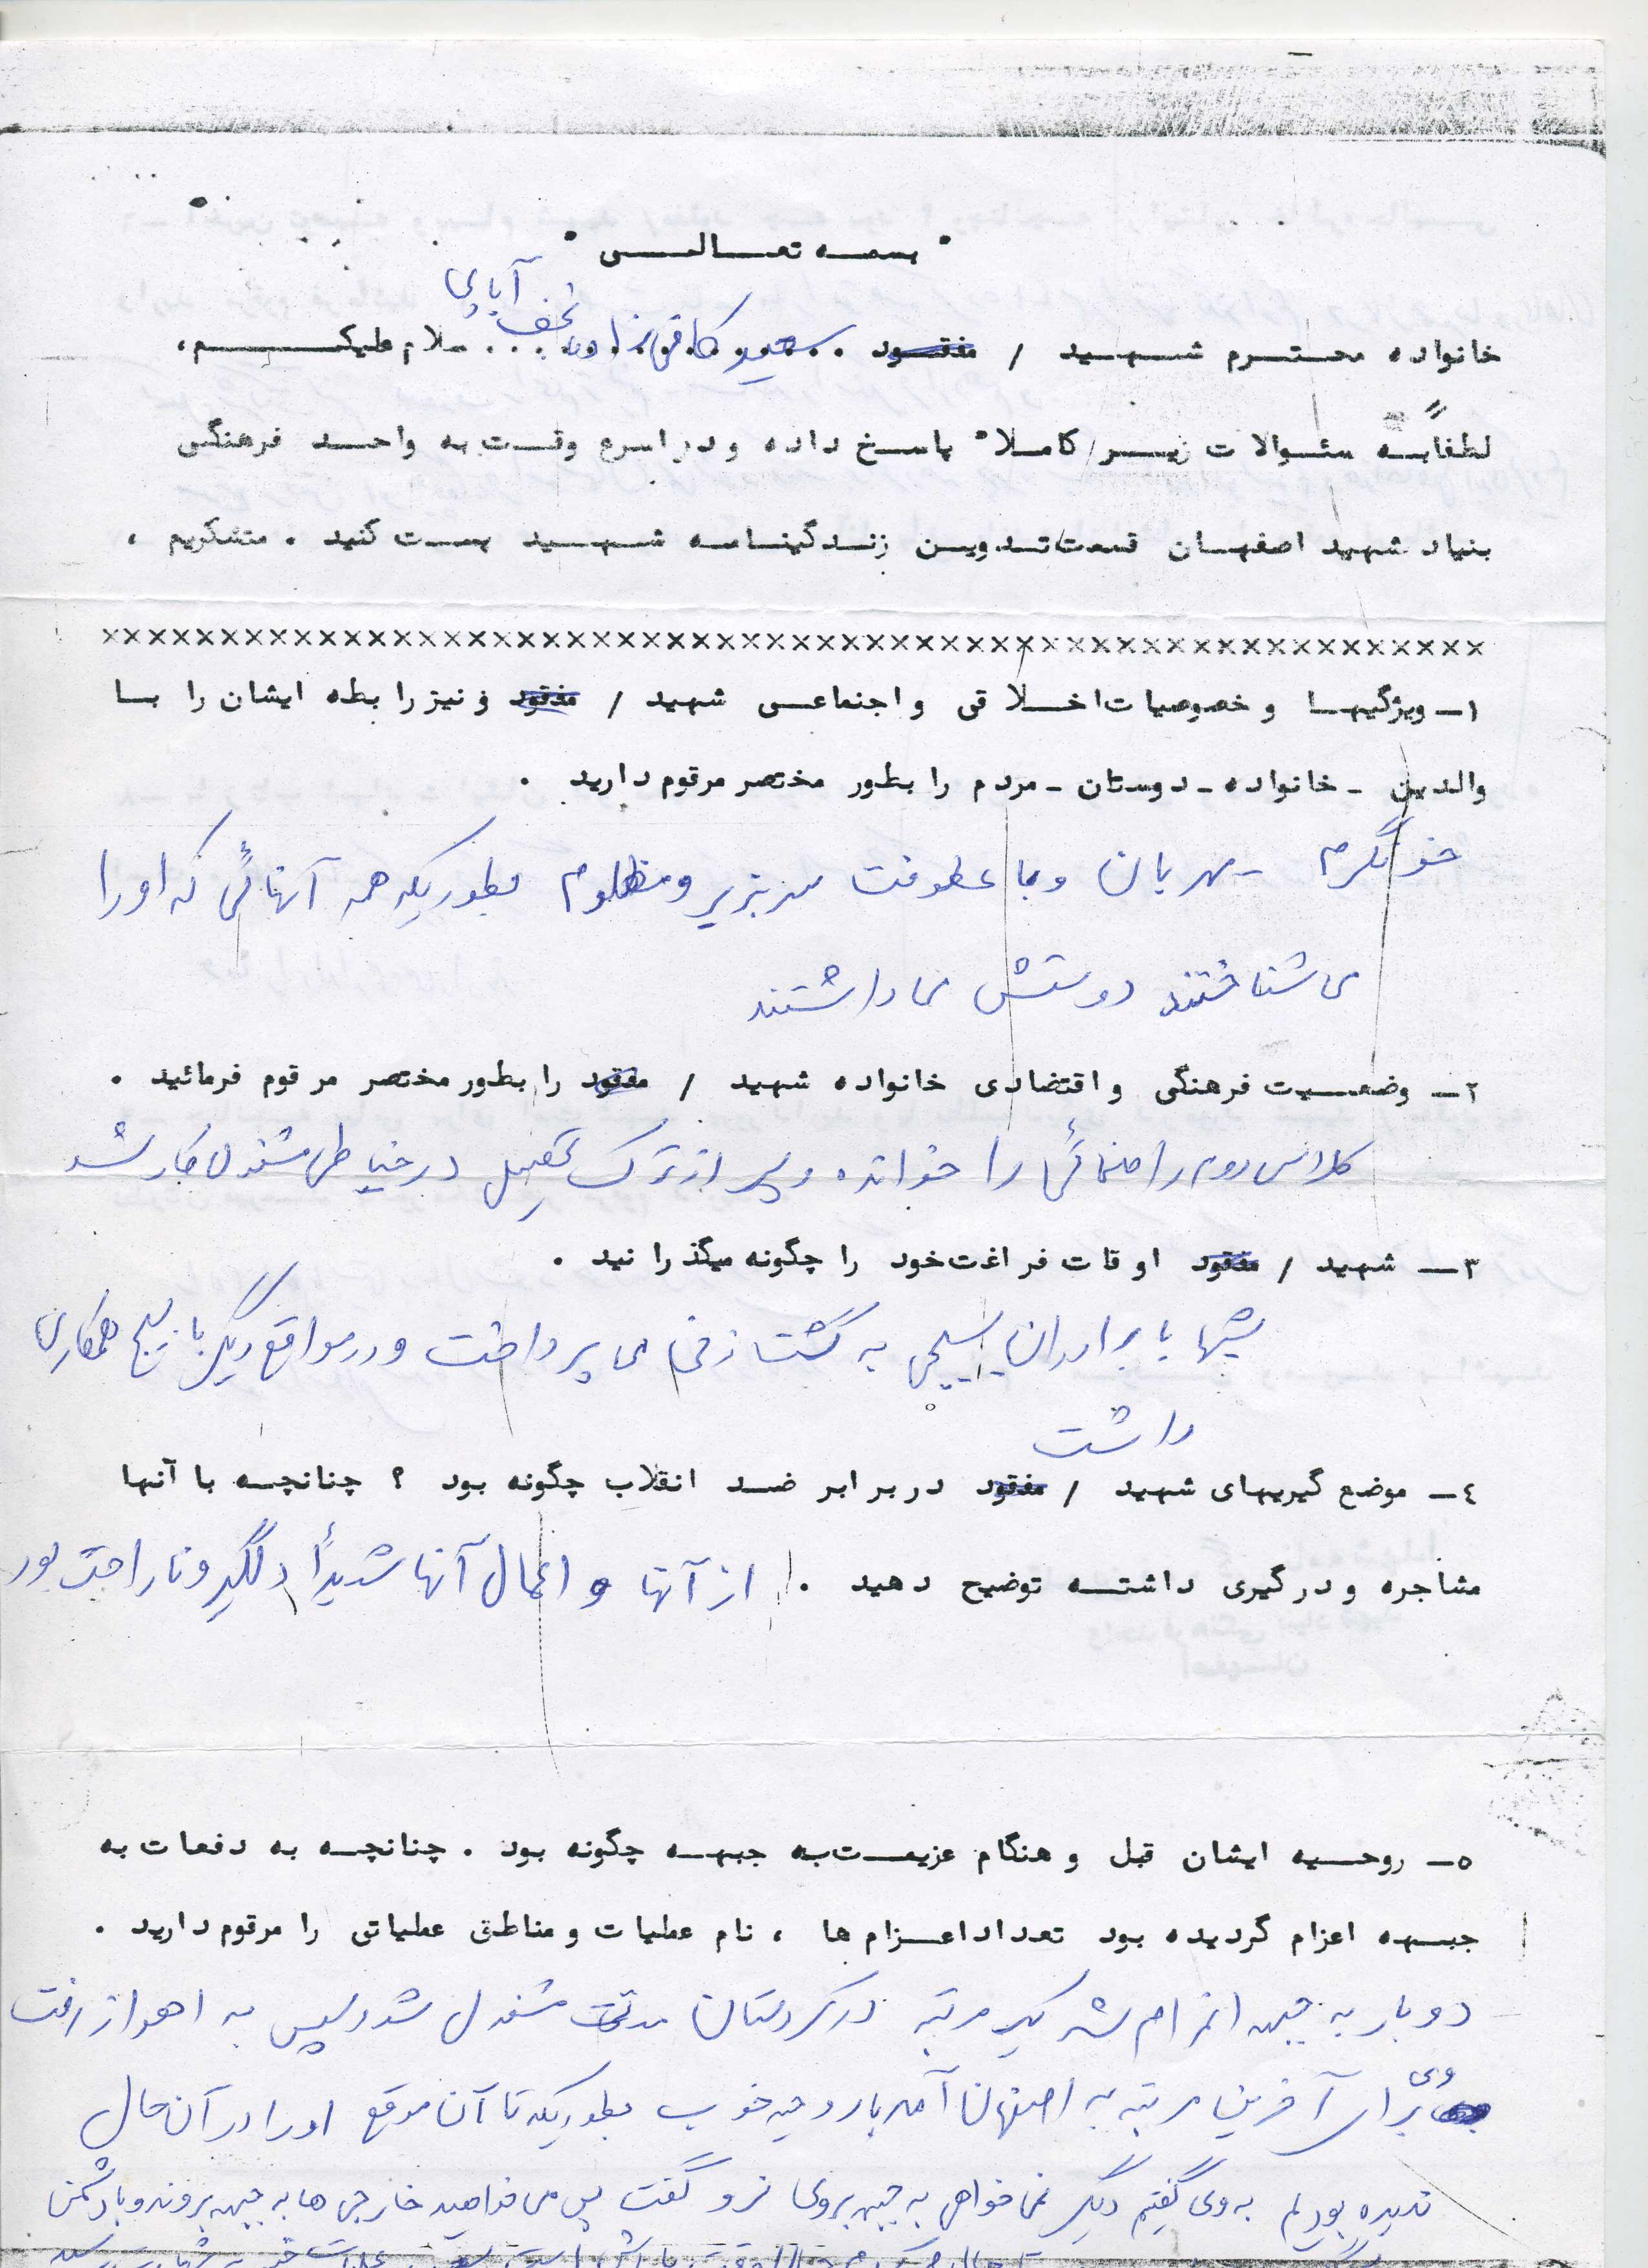 " بسمه تعالی "
نجف آبادی
خانواده محترم شهید / مفقود . سعید کافی زاده . . سلام علیکم ،
لطفاً به سئوالات زیر کاملا" پاسخ داده و در اسرع وقت به واحد فرهنگی
بنیاد شهید اصفهان قسمت تدوین زندگینامه شهید پست کنید . متشکریم ،
××××××××××××××××××××××××××××××××××××××××××××××××××××××××××
۱ـ ویژگیها و خصوصیات اخلاقی و اجتماعی شهید / مفقود و نیز رابطه ایشان را با
والدین ـ خانواده ـ دوستان ـ مردم را بطور مختصر مرقوم دارید .
خونگرم - مهربان و با عطوفت سربزیر و مظلوم بطوریکه همه آنهائی که او را
می شناختند دوستش می داشتند
۲ـ وضعیت فرهنگی و اقتضادی خانواده شهید / مفقود را بطور مختصر مرقوم فرمائید .
کلاس دوم راهنمائی را خوانده و پس از ترک تحصیل در خیاطی مشغول بکار شد
۳ـ شهید / مفقود اوقات فراغت خود را چگونه میگذرانید .
شبها با برادران بسیجی به گشت زنی می پرداخت و در مواقع دیگر با بسیج همکاری
داشت
٤ـ موضع گیریهای شهید / مفقود در برابر ضد انقلاب چگونه بود ؟ چنانچه با آنها
مشاجره و درگیری داشته توضیح دهید . از آنها و اعمال آنها شدیداً دلگیر و ناراحت بود
۵ـ روحیه ایشان قبل و هنگام عزیمت به جبهه چگونه بود . چنانچه به دفعات به
جبهه اعزام گردیده بود تعداد اعزام ها ، نام عملیات و مناطق عملیاتی را مرقوم دارید .
دوبار به جبهه اعزام شد یک مرتبه در کردستان مدتی مشغول شد و سپس به اهواز رفت
وی برای آخرین مرتبه به اصفهان آمد با روحیه خوب بطوریکه تا آن موقع او را در آن حال
ندیده بودیم به وی گفتیم دیگر نمی خواهی به جبهه بروی نرو گفت پس می خواهید خارجی ها به جبهه بروند و با دشمن